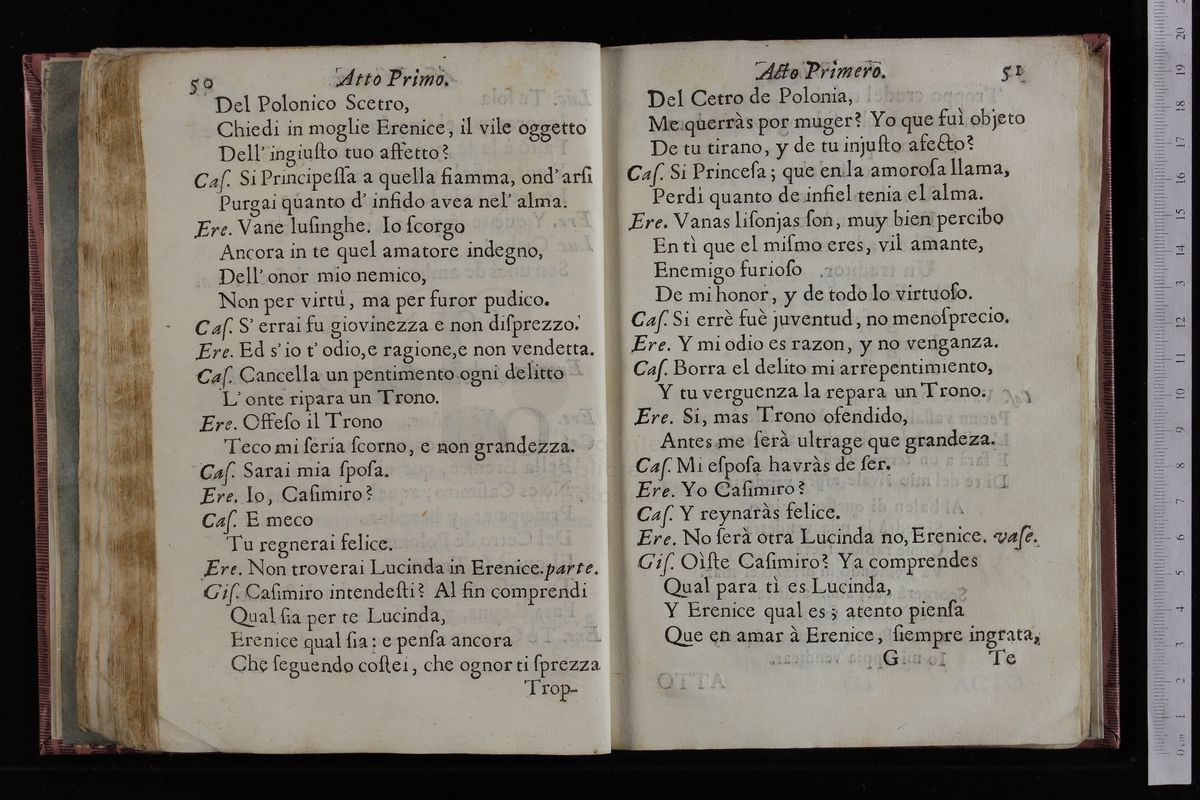 50 Atto Primo.
Del Polonico Scetro,
Chiedi in moglie Erenice, il vile oggetto
Dell' ingiuſto tuo affetto?
Caſ. Si Principeſſa a quella fiamma, ond' arſi
Purgai quanto d' infido avea nel' alma.
Ere. Vane luſinghe. Io ſcorgo
Ancora in te quel amatore indegno,
Dell' onor mio nemico,
Non per virtù, ma per furor pudico.
Caſ. S' errai fu giovinezza e non diſprezzo.
Ere. Ed s' io t' odio, e ragione, e non vendetta.
Caſ. Cancella un pentimento ogni delitto
L' onte ripara un Trono.
Ere. Offeſo il Trono
Teco mi ſeria ſcorno, e non grandezza.
Caſ. Sarai mia ſpoſa.
Ere. Io, Caſimiro?
Caſ. E meco
Tu regnerai felice.
Ere. Non troverai Lucinda in Erenice. parte.
Giſ. Caſimiro intendeſti? Al fin comprendi
Qual ſia per te Lucinda,
Erenice qual ſia: e penſa ancora
Che ſeguendo coſtei, che ognor ti ſprezza
Trop-
Acto Primero. 51
Del Cetro de Polonia,
Me querràs por muger? Yo que fuì objeto
De tu tirano, y de tu injuſto afecto?
Caſ. Si Princeſa; que en la amoroſa llama,
Perdi quanto de infiel tenia el alma.
Ere. Vanas liſonjas ſon, muy bien percibo
En tì que el miſmo eres, vil amante,
Enemigo furioſo
De mi honor, y de todo lo virtuoſo.
Caſ. Si errè fuè juventud, no menoſprecio.
Ere. Y mi odio es razon, y no venganza.
Caſ. Borra el delito mi arrepentimiento,
Y tu verguenza la repara un Trono.
Ere. Si, mas Trono ofendido,
Antes me ſerà ultrage que grandeza.
Caſ. Mi eſpoſa havràs de ſer.
Ere. Yo Caſimiro?
Caſ. Y reynaràs felice.
Ere. No ſerà otra Lucinda no, Erenice. vaſe.
Giſ. Oìſte Caſimiro? Ya comprendes
Qual para tì es Lucinda,
Y Erenice qual es; atento pienſa
Que en amar à Erenice, ſiempre ingrata,
G Te